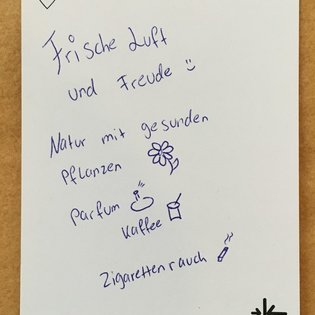 Frische Luft
und Freude
Natur mit gesunden
Pflanzen
Parfum
Kaffee
Zigarettenrauch